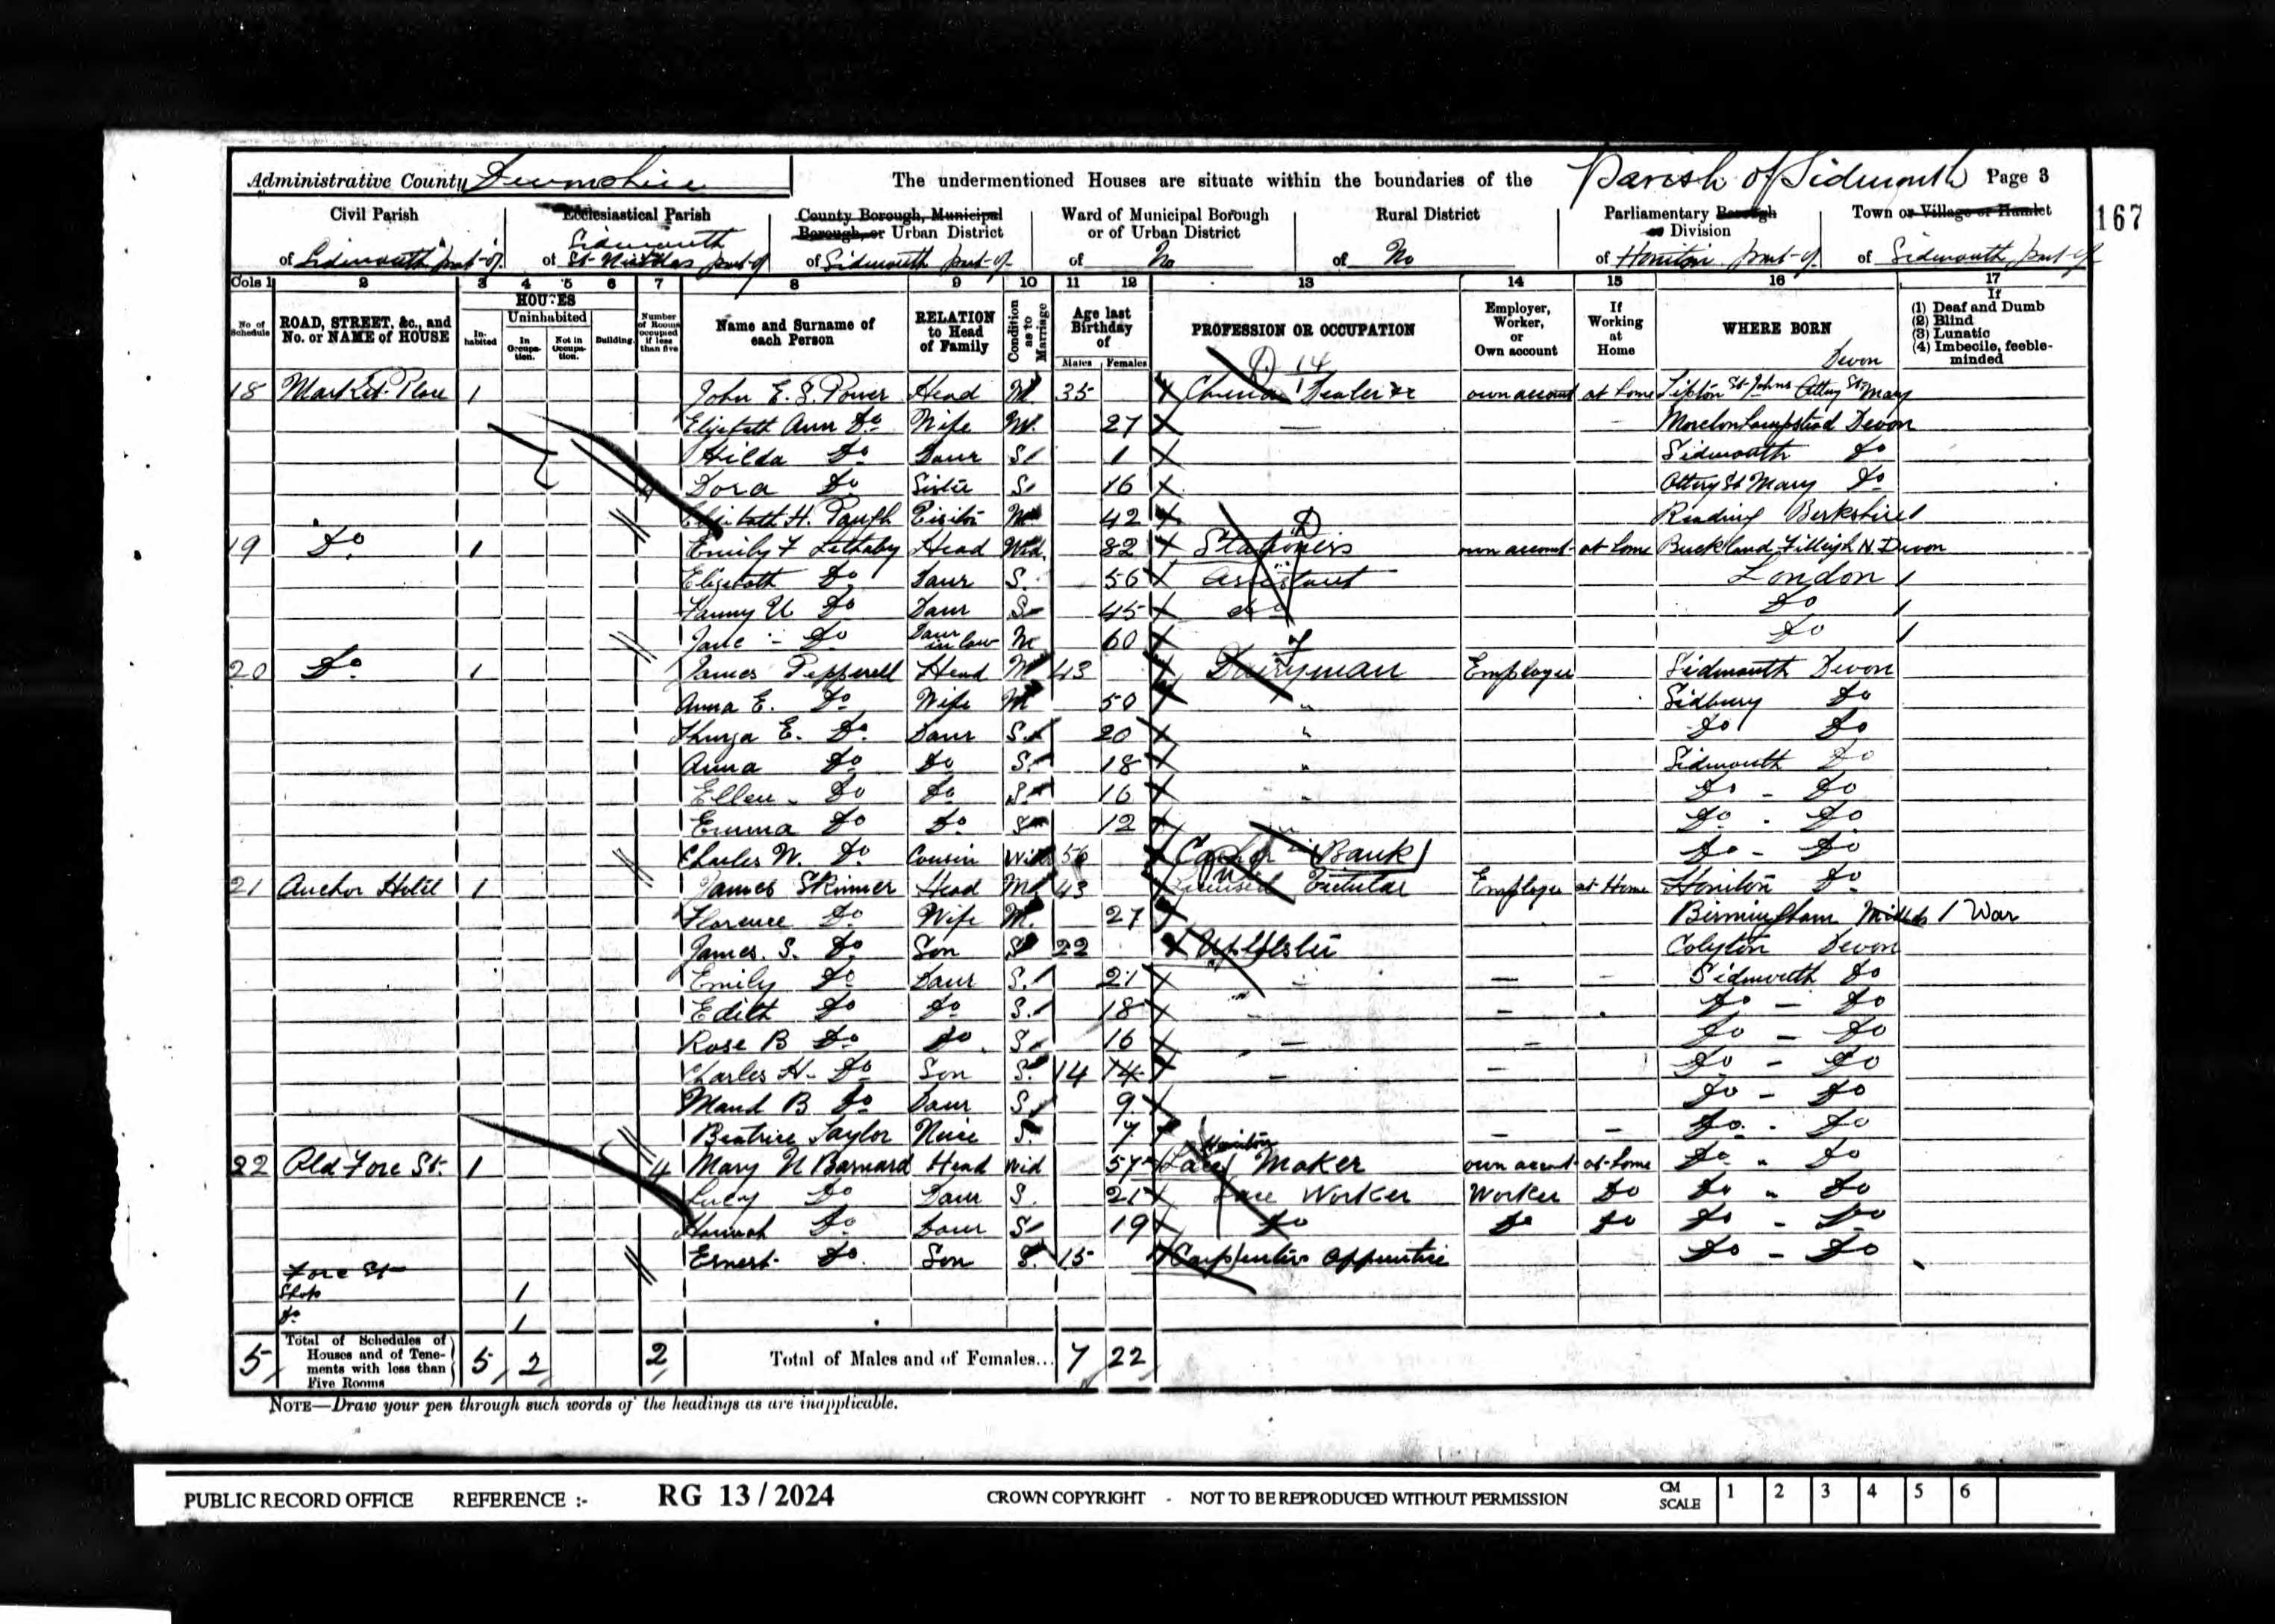 Administrative County Devonshire The undermentioned Houses are situate within the boundaries of the Parish of Sidmouth Page 3
167
Civil Parish Ecclesiastical Parish County Borough, Municipal Borough, or Urban District Ward of Municipal Borough or of Urban District Rural District Parliamentary Borough or Division Town or Village or Hamlet
of Sidmouth part of of Sidmouth St Nicholas part of of Sidmouth part of of No of No of Honiton part of of Sidmouth part of
Cols 1 2 3 4 5 6 7 8 9 10 11 12 13 14 15 16 17
No of Schedule ROAD, STREET, &c., and No. or NAME of HOUSE HOUSES Inhabited Uninhabited In Occupation. Not in Occupation. Building. Number of Rooms occupied if less than five Name and Surname of each Person RELATION to Head of Family Condition as to Marriage Age last Birthday of Males Females PROFESSION OR OCCUPATION Employer, Worker, or Own account If Working at Home WHERE BORN If (1) Deaf and Dumb (2) Blind (3) Lunatic (4) Imbecile, feeble-minded
18 Market Place 1 John E. S. Power Head M 35 China Dealer &c own account at home Tipton St Johns Ottery St Mary Devon
Elizabeth Ann Do Wife M 27 Moretonhampstead Devon
Hilda Do Daur S 1 Sidmouth Do
Dora Do Sister S 16 Ottery St Mary Do
Elizabeth H. Visitor M 42 Reading Berkshire
19 Do 1 Emily F Lethaby Head Wid. 82 Stationers own account at home Buckland Filleigh N. Devon
Elizabeth Do Daur S. 56 Assistant London
Fanny U Do Daur S 45 do Do
Jane - Do Daur in law M 60 Do
20 Do 1 James Pepperell Head M 43 Dairyman Employer Sidmouth Devon
Anna E. Do Wife M 50 " Sidbury Do
Thurza E. Do Daur S. 20 " Do Do
Anna Do Do S. 18 " Sidmouth Do
Ellen - Do Do S 16 " Do - Do
Emma Do Do S 12 " Do - Do
Charles W. Do Cousin Wid 56 Bank Do - Do
21 Anchor Hotel 1 James Skinner Head M 43 Licensed Victular Employer at Home Honiton Do
Florence Do Wife M. 27 Birmingham War
James. S. Do Son S 22 Upholster Colyton Devon
Emily Do Daur S. 21 - - - Sidmouth Do
Edith Do Do S. 18 - - Do - Do
Rose B Do Do S. 16 - - Do - Do
Charles H. Do Son S. 14 14 - - Do - Do
Maud B Do Daur S 9 Do - Do
Beatrice Taylor Neice S. 7 - - Do - Do
22 Old Fore St. 1 4 Mary U Barnard Head Wid 57 Honiton Lace Maker own account at home Do " Do
Lucy Do Daur S. 21 Lace Worker Worker Do Do " Do
Hannah Do Daur S 19 Do Do Do Do - Do
Ernest Do Son S. 15 Carpenters Apprentice Do - Do
Fore St
Shop 1
Do 1
5 Total of Schedules of Houses and of Tenements with less than Five Rooms 5 2 2 Total of Males and of Females... 7 22
NOTE—Draw your pen through such words of the headings as are inapplicable.
PUBLIC RECORD OFFICE REFERENCE :- RG 13 / 2024 CROWN COPYRIGHT - NOT TO BE REPRODUCED WITHOUT PERMISSION CM SCALE 1 2 3 4 5 6